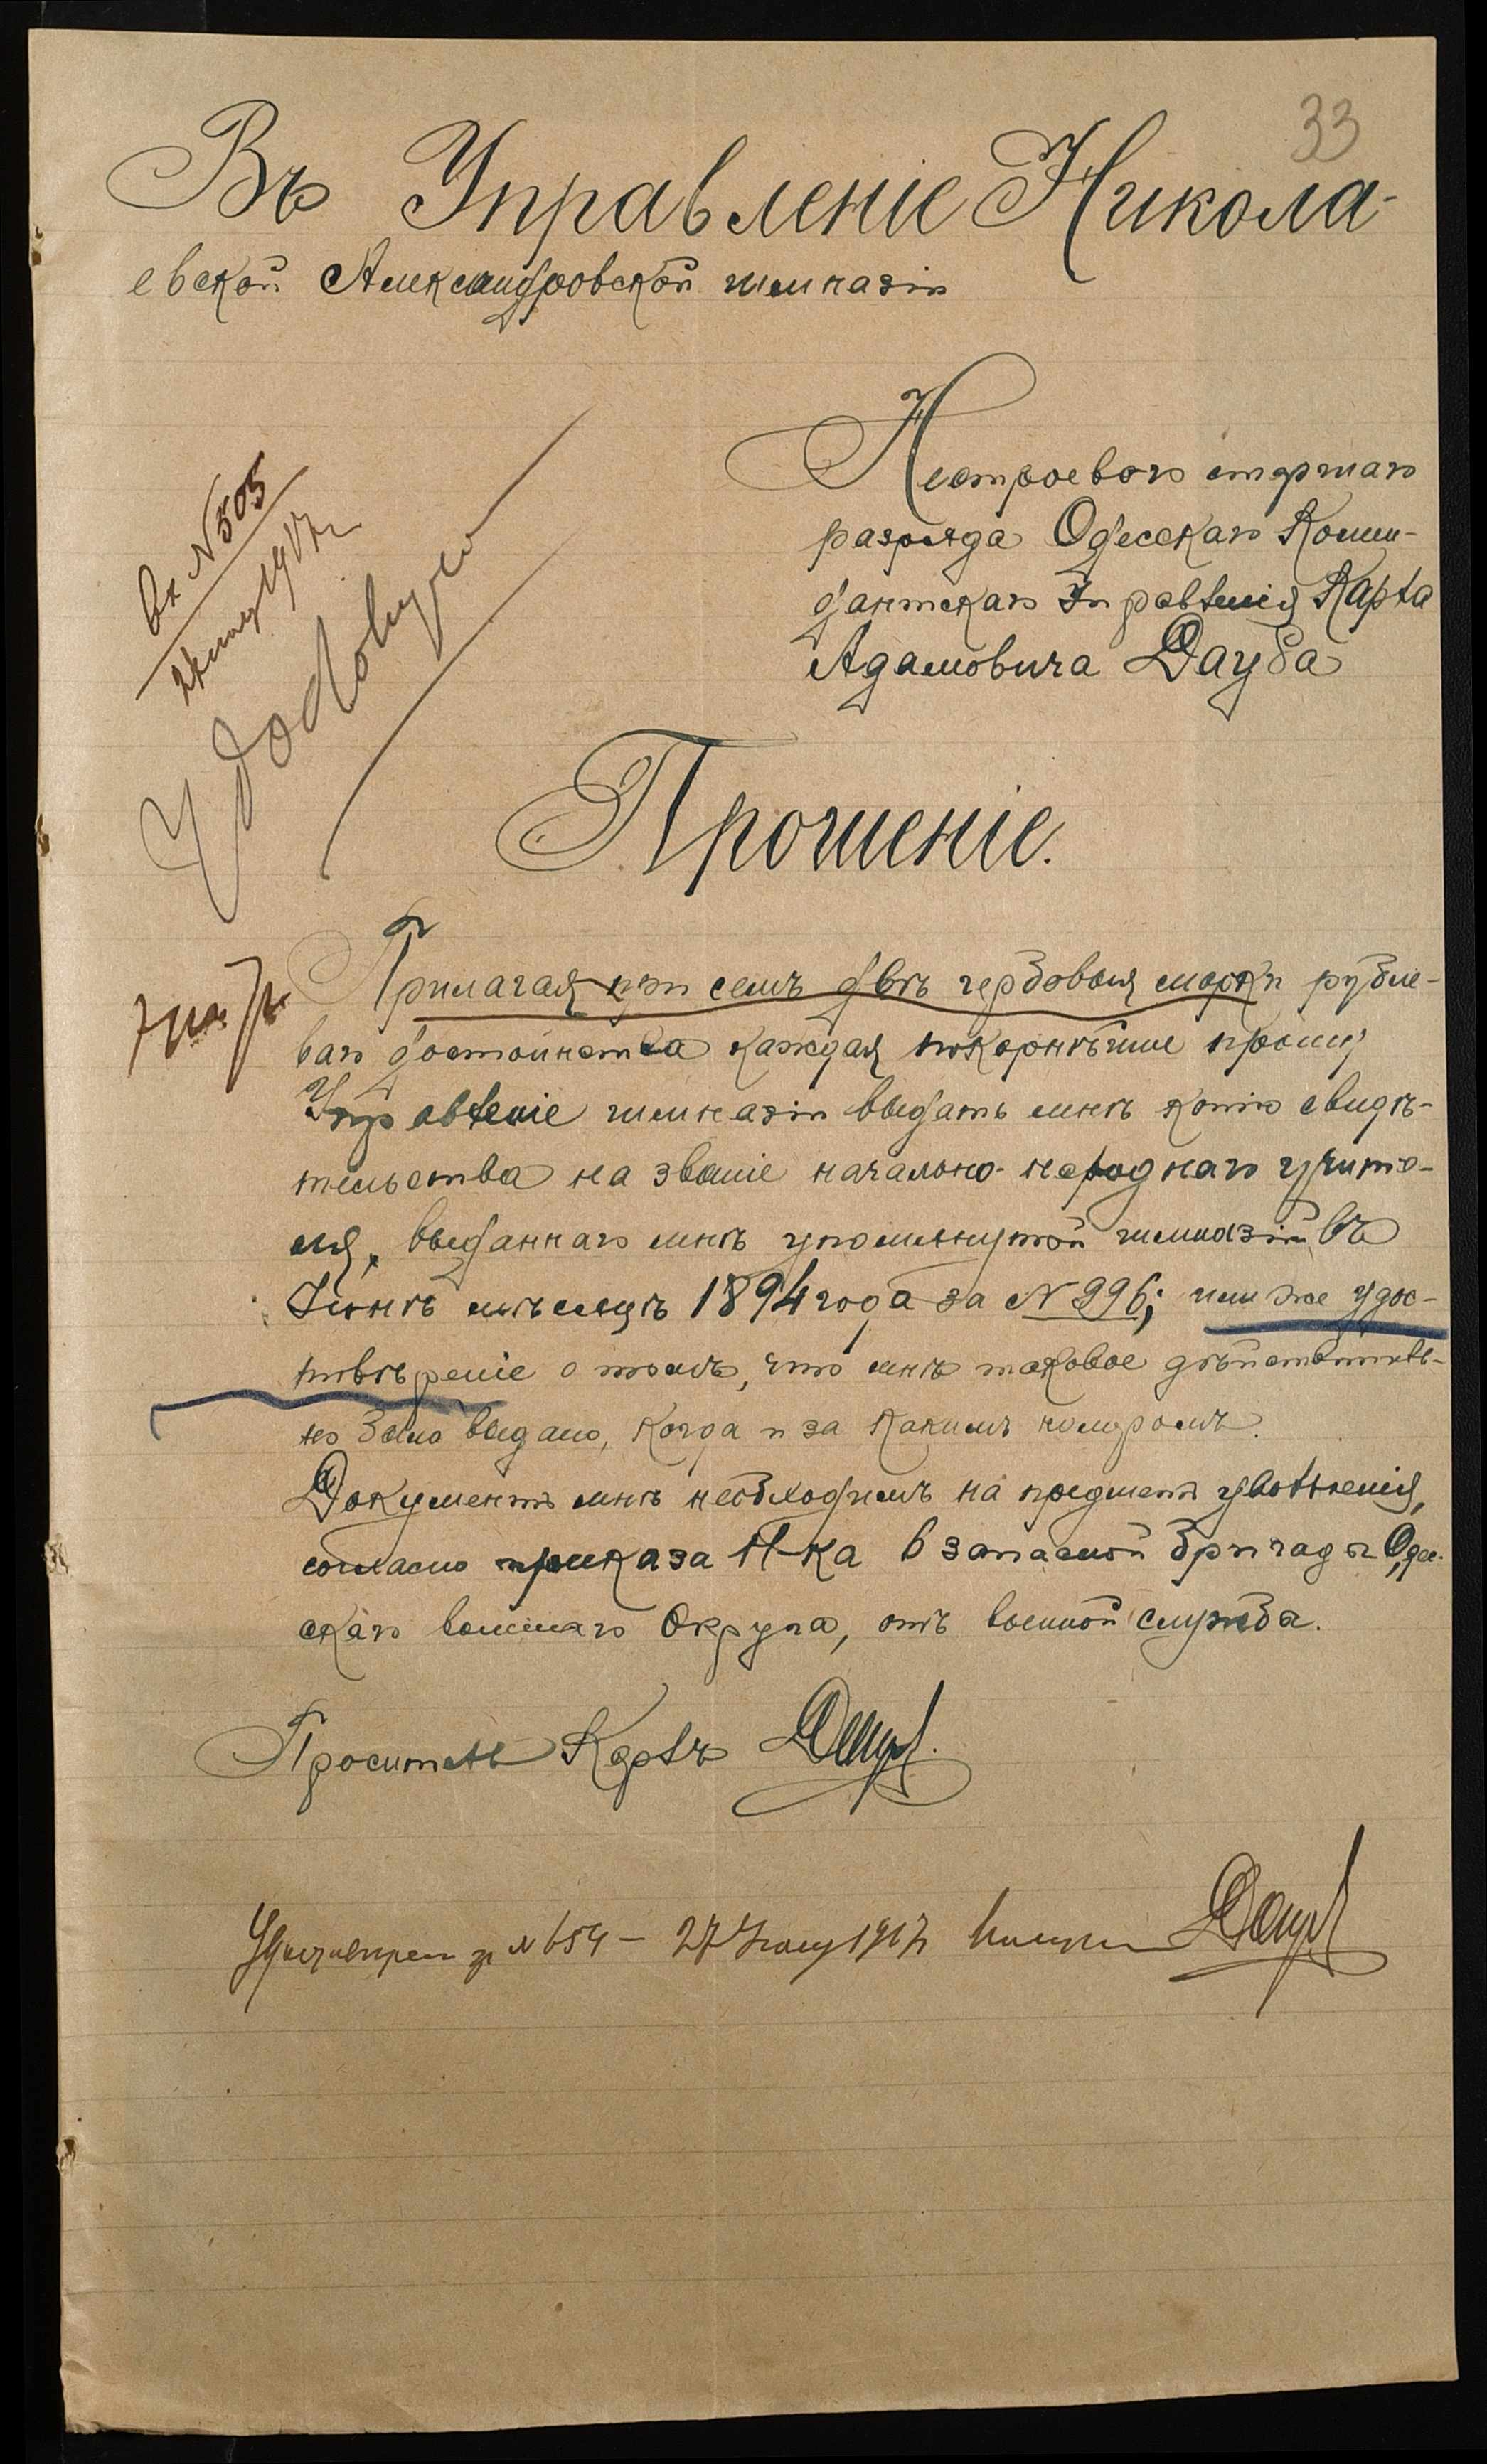 33
Въ Управленіе Никола-
евской Александровской гимназіи
Нестроевого старшаго
разряда Одесскаго Комен-
дантскаго Управленія Карла
Адамовича Дауба
вх N 505
1917 г
Прошеніе.
Прилагая при семъ двѣ гербовыя марки рубле-
ваго достоинства каждая покорнѣйше прошу
Управленіе гимназіи выдать мнѣ копію свидѣ-
тельства на званіе начально-народнаго учите-
ля, выданнаго мнѣ упомянутой гимназіей въ
Іюнѣ мѣсяцѣ 1894 года за N 996; или же удос-
товѣреніе о томъ, что мнѣ таковое дѣйствитель-
но было выдано, когда и за какимъ номеромъ.
Документъ мнѣ необходимъ на предметъ увольненія,
согласно приказа Н-ка 6 запасной бригады Одес-
скаго военнаго Округа, отъ военной службы.
Проситель Карлъ Даубъ.
Удостовѣреніе за N 654 – 27 Іюля 1917 Получилъ Даубъ